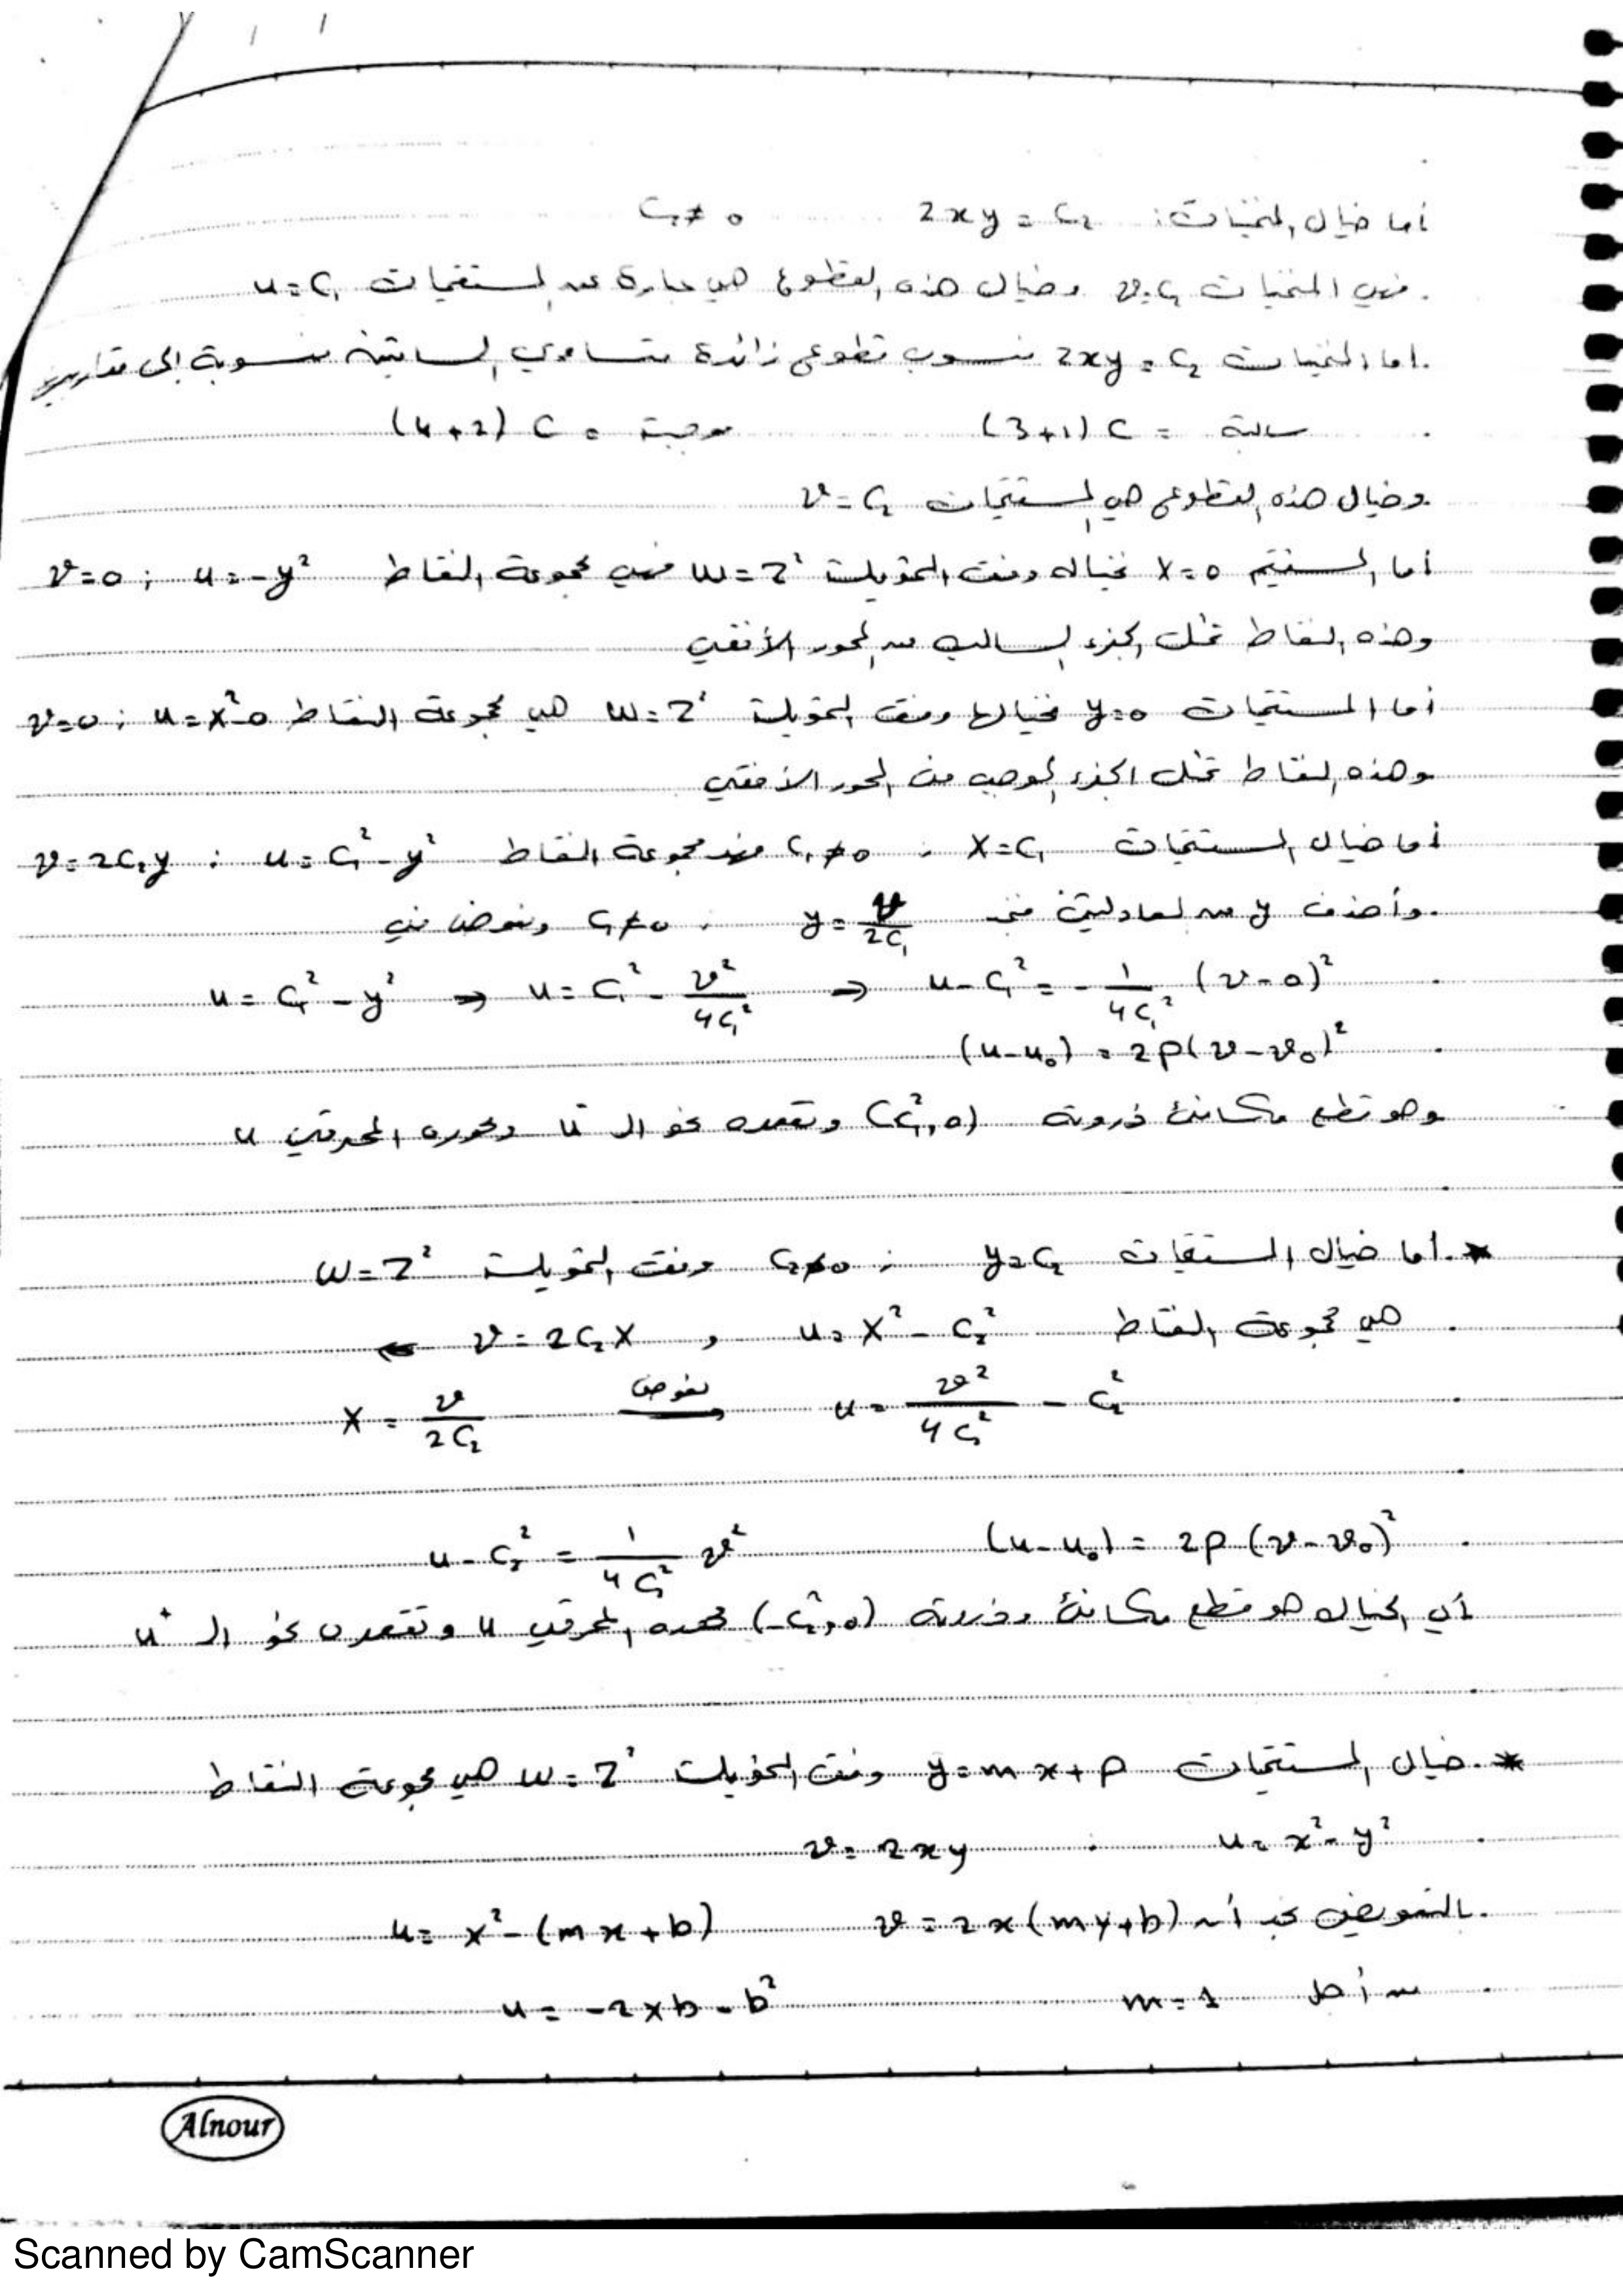 أما خيال المنحنيات: 2xy = C₂ C₂ ≠ 0
فهي المنحنيات v = C₂ وخيال هذه القطوع هي عبارة عن المستقيمات u = C₁
أما المنحنيات 2xy = C₂ منسوب قطوع زائدة متساوي الساقين منسوبة إلى مقاربين
سالبة = C (3+1) موجبة = C (4+2)
وخيال هذه القطوع هي المستقيمات v = C₂
أما المستقيم x = 0 فخياله وفق التحويلة w = z² فهي مجموعة النقاط u = -y² ; v = 0
وهذه النقاط تمثل الجزء السالب من المحور الأفقي
أما المستقيمات y = 0 فخيالها وفق التحويلة w = z² هي مجموعة النقاط u = x² - 0 ; v = 0
وهذه النقاط تمثل الجزء الموجب من المحور الأفقي
أما خيال المستقيمات x = C₁ , C₁ ≠ 0 فهذ مجموعة النقاط u = C₁² - y² ; v = 2C₁y
وأحذف y من المعادلتين فنجد y = v/2C₁ , C₁ ≠ 0 ونعوض في
u = C₁² - y² ⇒ u = C₁² - v²/4C₁² ⇒ u - C₁² = -1/4C₁² (v - 0)²
(u - u₀) = 2p(v - v₀)²
وهو قطع مكافئ ذروته (C₁², 0) وتقعره نحو الـ u⁻ ومحوره المحرقي u
* أما خيال المستقيمات y = C₂ ; C₂ ≠ 0 وفق التحويلة w = z²
هي مجموعة النقاط u = x² - C₂² , v = 2C₂x ←
x = v/2C₂ نعوض u = v²/4C₂² - C₂²
u - C₂² = 1/4C₂² v² (u - u₀) = 2p(v - v₀)²
أي الخيال هو قطع مكافئ وذروته (-C₂², 0) محوره المحرقي u وتقعره نحو الـ u⁺
* خيال المستقيمات y = mx + p وفق التحويلة w = z² هي مجموعة النقاط
u = x² - y² v = 2xy
بالتعويض نجد أن v = 2x(my+b) u = x² - (mx+b)
من أجل m = 1 u = -2xb - b²
Alnour
Scanned by CamScanner